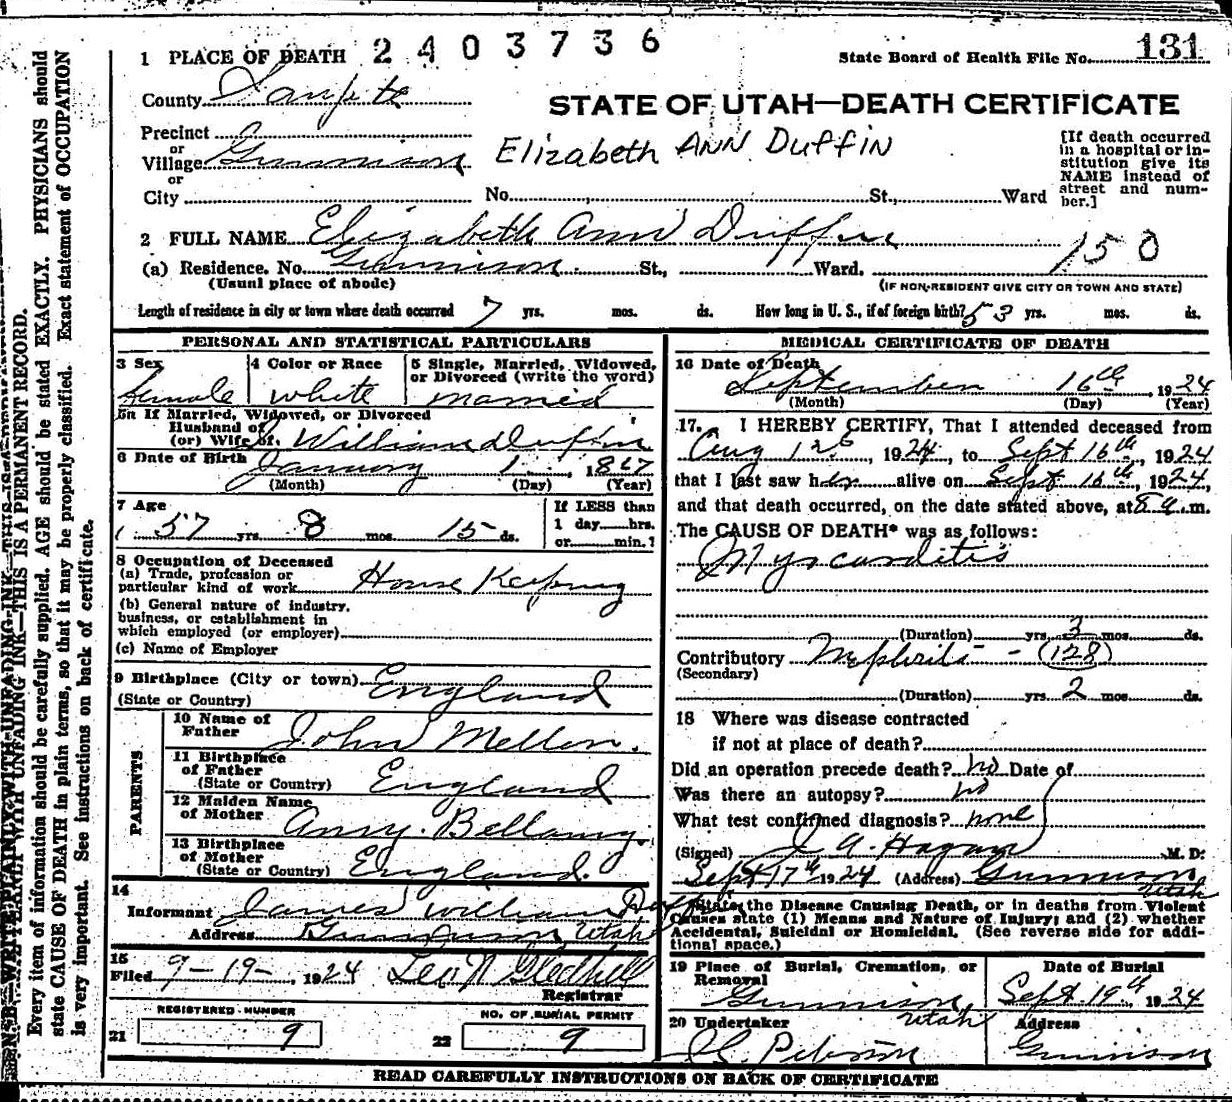 1 PLACE OF DEATH 2403736
State Board of Health File No. 131
County Sanpete
STATE OF UTAH—DEATH CERTIFICATE
Precinct
or
Village Gunnison
Elizabeth ANN Duffin
[If death occurred in a hospital or institution give its NAME instead of street and number.]
or
City
No. St., Ward
2 FULL NAME Elizabeth Ann Duffin
150
(a) Residence. No. Gunnison St., Ward.
(Usual place of abode) (IF NON-RESIDENT GIVE CITY OR TOWN AND STATE)
Length of residence in city or town where death occurred 7 yrs. mos. ds. How long in U. S., if of foreign birth? 53 yrs. mos. ds.
PERSONAL AND STATISTICAL PARTICULARS
3 Sex female
4 Color or Race white
5 Single, Married, Widowed, or Divorced (write the word) married
5a If Married, Widowed, or Divorced
Husband of
(or) Wife of William Duffin
6 Date of Birth January 1, 1867
(Month) (Day) (Year)
7 Age
57 yrs. 8 mos. 15 ds.
If LESS than
1 day hrs.
or min.?
8 Occupation of Deceased
(a) Trade, profession or
particular kind of work House Keeping
(b) General nature of industry,
business, or establishment in
which employed (or employer)
(c) Name of Employer
9 Birthplace (City or town) England
(State or Country)
PARENTS
10 Name of
Father John Mellor.
11 Birthplace
of Father England
(State or Country)
12 Maiden Name
of Mother Anny. Bellamy
13 Birthplace
of Mother
(State or Country) England.
14
Informant James William Duffin
Address Gunnison Utah
15
Filed 9-19-, 1924 Leo N Gledhill
Registrar
REGISTERED NUMBER
21 9
NO. OF BURIAL PERMIT
22 9
MEDICAL CERTIFICATE OF DEATH
16 Date of Death
September 16th 1924
(Month) (Day) (Year)
17. I HEREBY CERTIFY, That I attended deceased from
Aug 12, 1924, to Sept 16th, 1924
that I last saw her alive on Sept 16th, 1924,
and that death occurred, on the date stated above, at 8 a.m.
The CAUSE OF DEATH* was as follows:
Myocarditis
(Duration) yrs. 3 mos. ds.
Contributory Nephritis - (128)
(Secondary)
(Duration) yrs. 2 mos. ds.
18 Where was disease contracted
if not at place of death?
Did an operation precede death? no Date of
Was there an autopsy? no
What test confirmed diagnosis? none
(Signed) J A. Hagan M. D.
Sept 17th 1924 (Address) Gunnison
Utah
*State the Disease Causing Death, or in deaths from Violent
Causes state (1) Means and Nature of Injury; and (2) whether
Accidental, Suicidal or Homicidal. (See reverse side for addi-
tional space.)
19 Place of Burial, Cremation, or
Removal
Gunnison,
Utah
Date of Burial
Sept 19th, 1924
20 Undertaker
Peterson
Address
Gunnison
READ CAREFULLY INSTRUCTIONS ON BACK OF CERTIFICATE
N. B.—WRITE PLAINLY WITH UNFADING INK—THIS IS A PERMANENT RECORD.
Every item of information should be carefully supplied. AGE should be stated EXACTLY. PHYSICIANS should
state CAUSE OF DEATH in plain terms, so that it may be properly classified. Exact statement of OCCUPATION
is very important. See instructions on back of certificate.